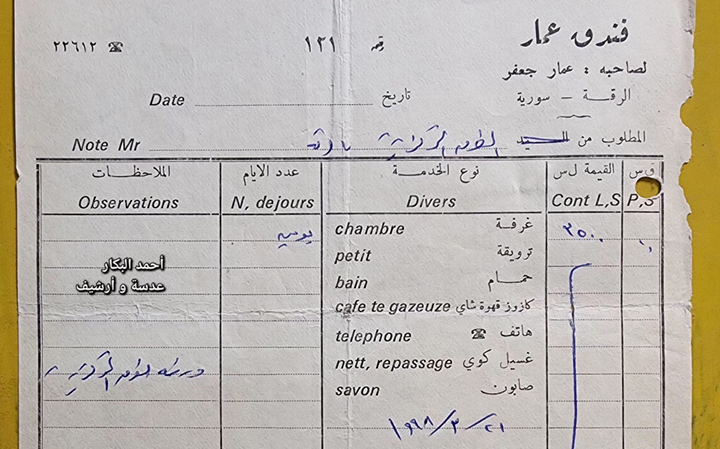 فندق عمار
لصاحبه : عمار جعفر
الرقة - سورية
رقم ١٢١
☎ ٢٢٦١٢
Date تاريخ
Note Mr المطلوب من السيد
الملاحظات عدد الايام نوع الخدمة القيمة ل س ق س
Observations N, dejours Divers Cont L,S P,S
chambre غرفة ٣٥٠٠
petit ترويقة
bain حمام
cafe te gazeuze كازوز قهوة شاي
telephone ☎ هاتف
nett, repassage غسيل كوي
savon صابون
١٩٩٨/٣/٢١
أحمد البكار
عدسة و أرشيف